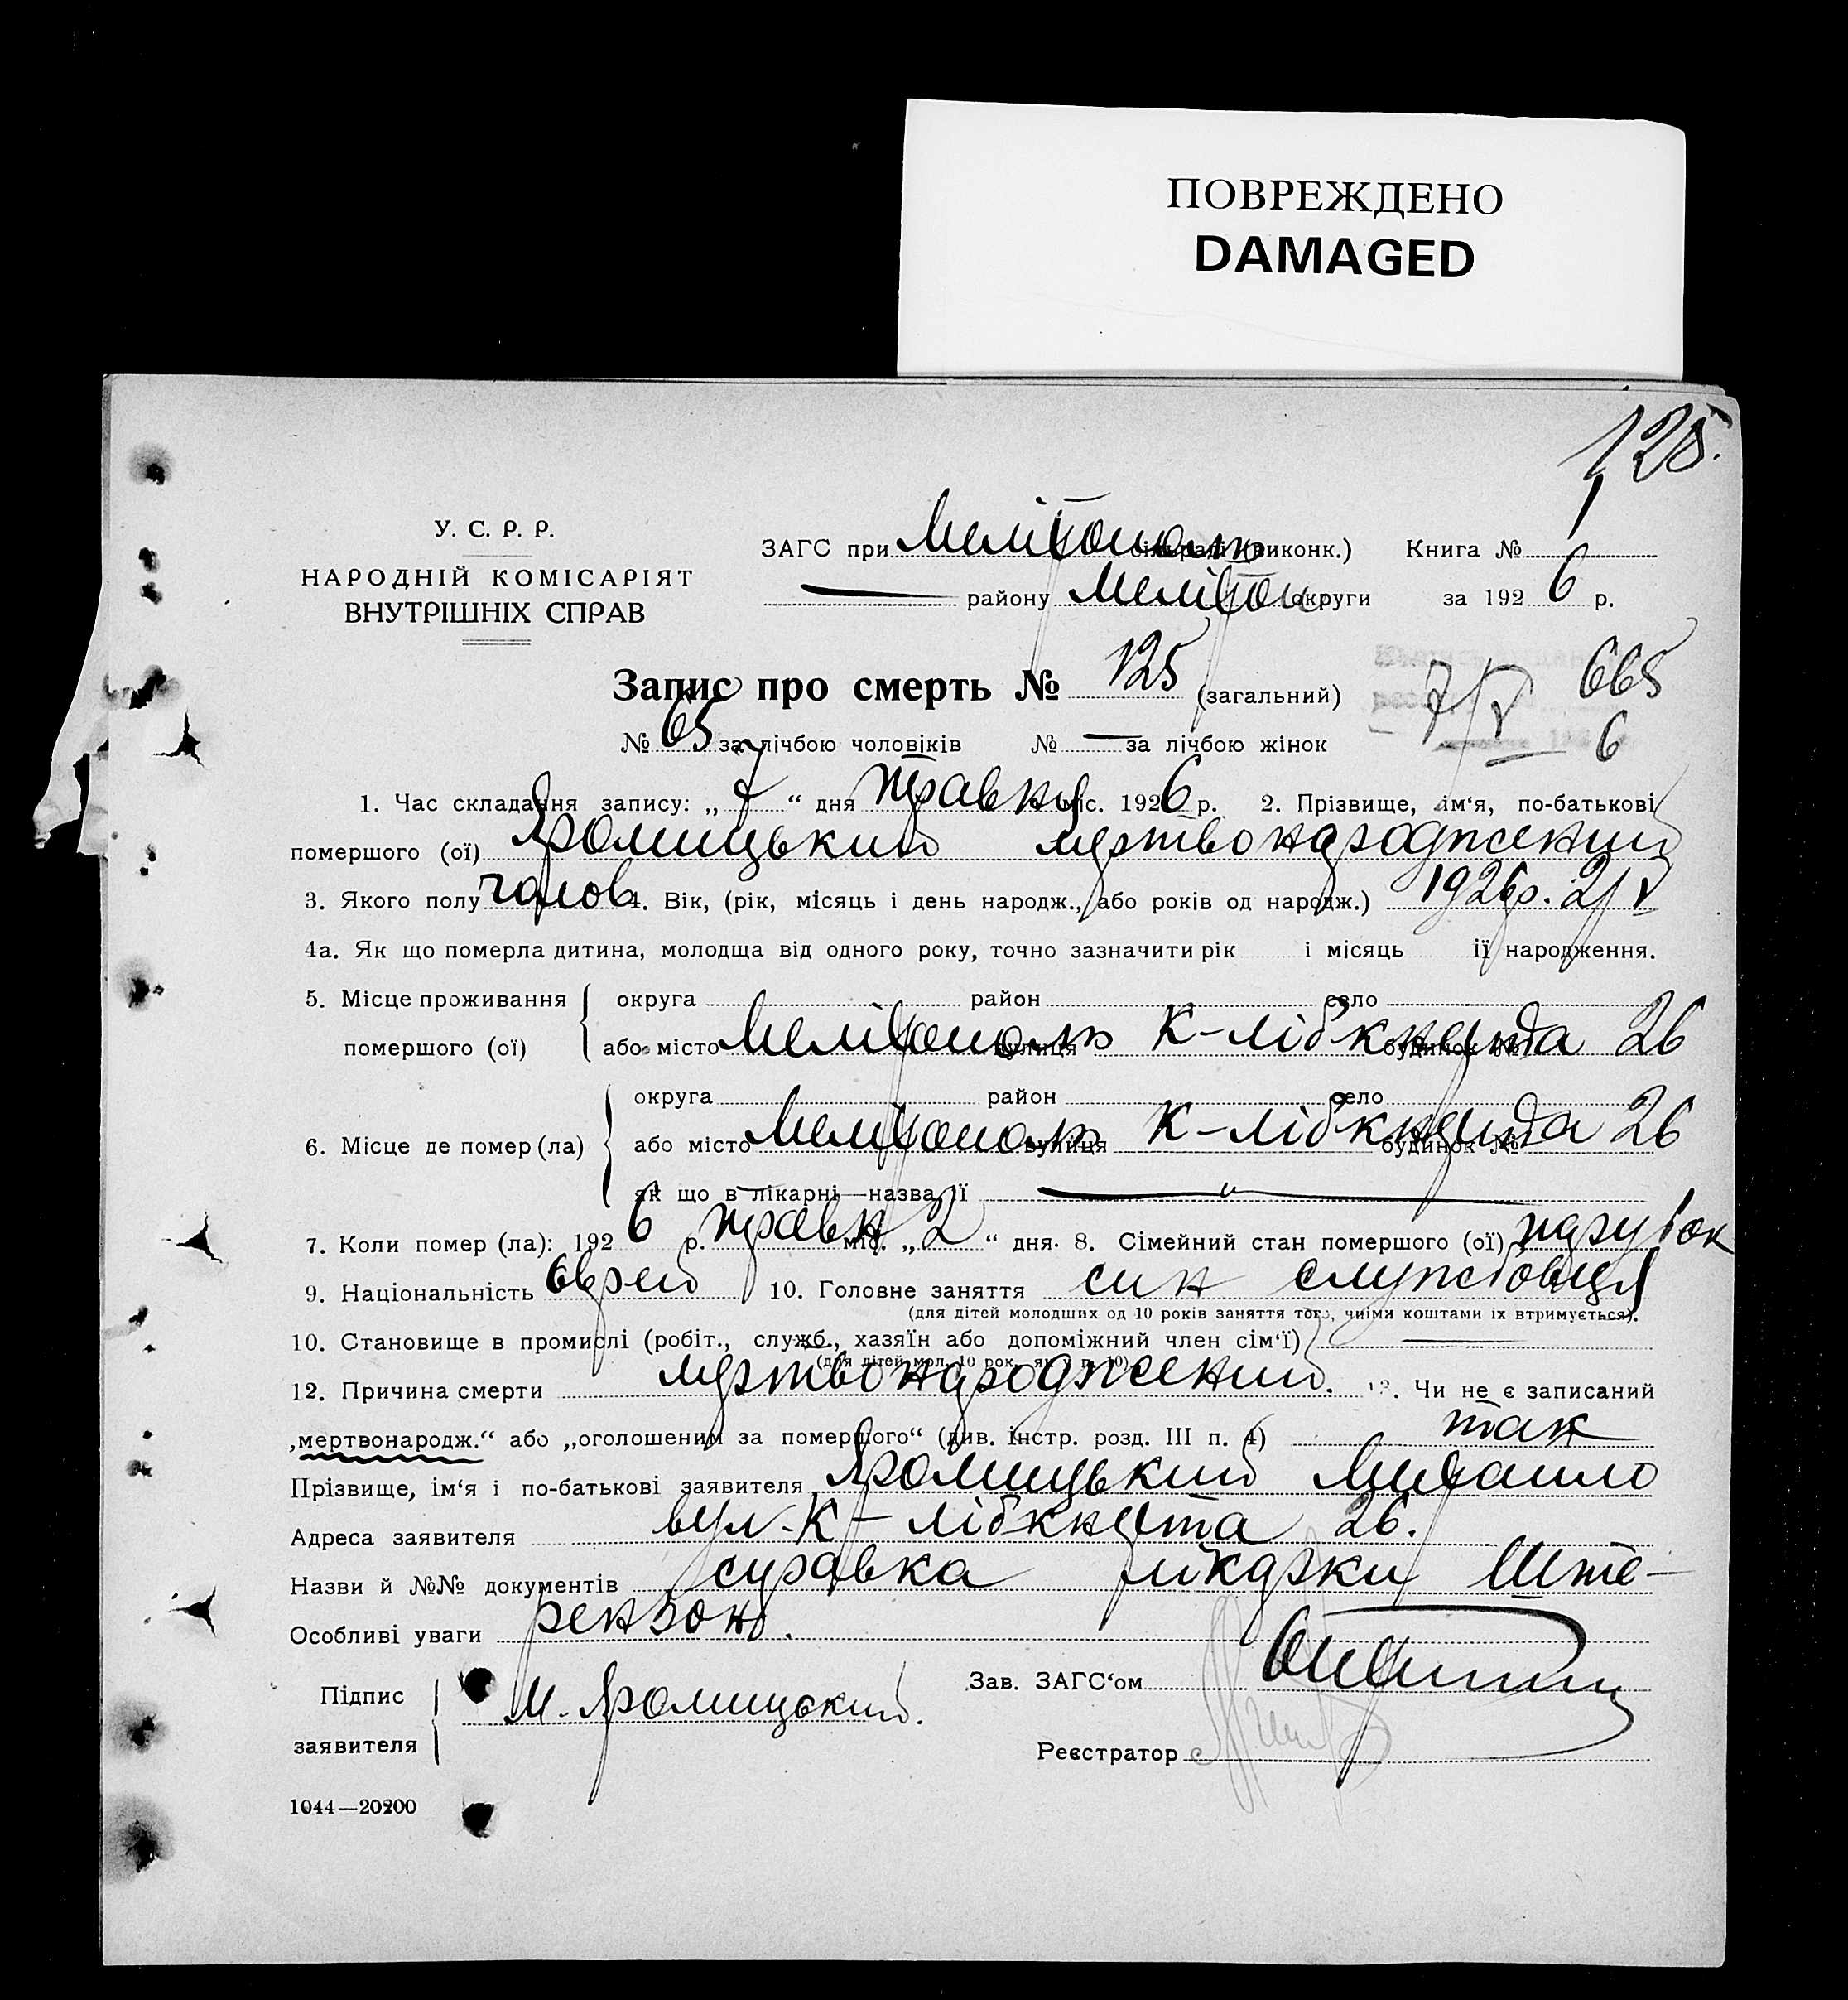 ПОВРЕЖДЕНО
DAMAGED
125.
У. С. Р. Р.
НАРОДНІЙ КОМІСАРІЯТ
ВНУТРІШНІХ СПРАВ
ЗАГС при Мелітополь сільраді (виконк.) Книга № 1
— району Мелітоп округи за 1926 р.
Запис про смерть № 125 (загальний) 7/V 665
№ 65 за лічбою чоловіків № — за лічбою жінок 6
1. Час складання запису: „7“ дня травня міс. 1926 р. 2. Прізвище, ім‘я, по-батькові
помершого (ої) Яромицький мертвонароджений
3. Якого полу чолов 4. Вік, (рік, місяць і день народж., або років од народж.) 1926р. 2/V
4а. Як що померла дитина, молодща від одного року, точно зазначити рік і місяць її народження.
5. Місце проживання помершого (ої) округа район село
або місто Мелітополь вулиця К-лібкнехта будинок № 26
6. Місце де помер (ла) округа район село
або місто Мелітополь вулиця К-лібкнехта будинок № 26
як що в лікарні—назва її — „ —
7. Коли помер (ла): 1926 р. травн міс. „2“ дня. 8. Сімейний стан помершого (ої) парубок
9. Національність єврей 10. Головне заняття син службовця
(для дітей молодших од 10 років заняття того, чиїми коштами їх втримується).
10. Становище в промислі (робіт., служб., хазяїн або допоміжний член сім‘ї) —
(для дітей мол. 10 рок. як у п. 10)
12. Причина смерти мертвонароджений. 13. Чи не є записаний
„мертвонародж.“ або „оголошеним за помершого“ (див. інстр. розд. III п. 4) так
Прізвище, ім‘я і по-батькові заявителя Яромицький Михайло
Адреса заявителя вул. К-лібкнехта 26.
Назви й №№ документів справка лікарки Ште-
Особливі уваги рензон.
Підпис заявителя М. Яромицький.
Зав. ЗАГС‘ом
Реєстратор
1044—20200